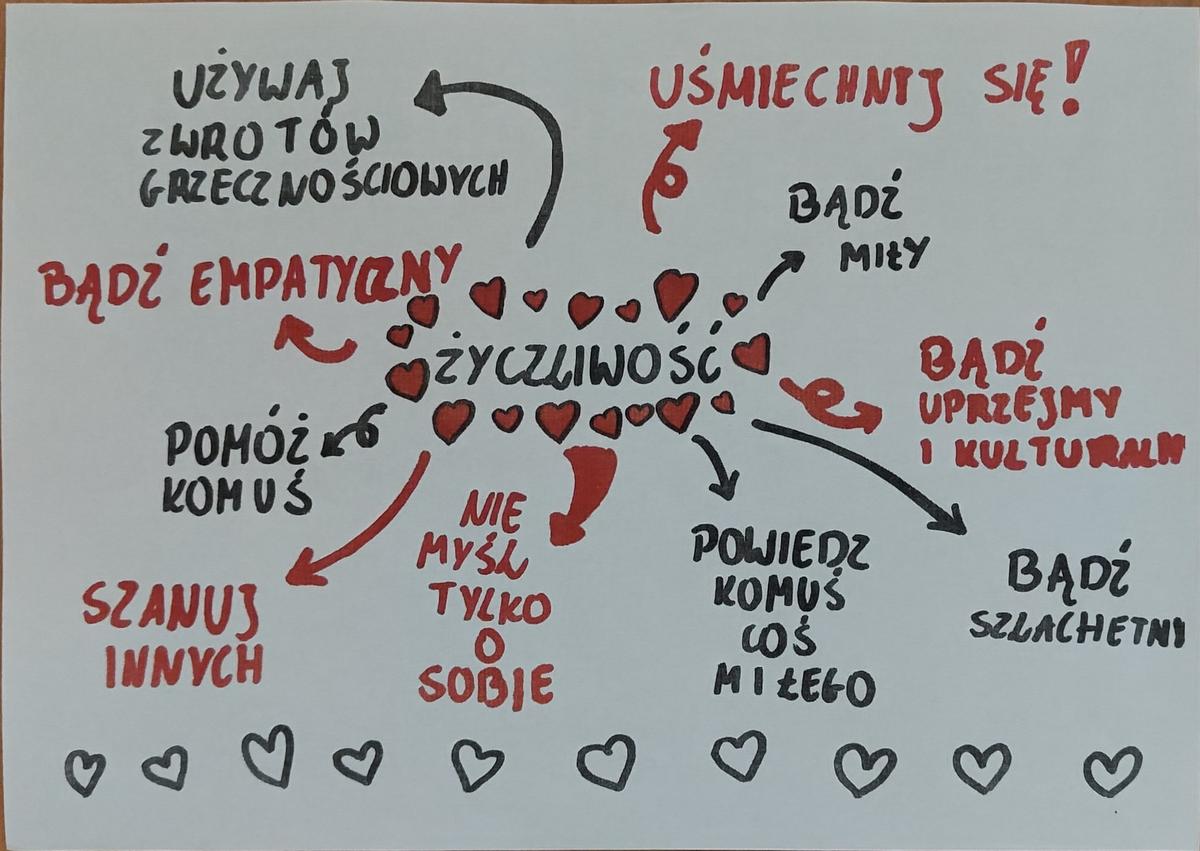 UŻYWAJ
ZWROTÓW
GRZECZNOŚCIOWYCH
UŚMIECHNIJ SIĘ!
BĄDŹ
MIŁY
BĄDŹ EMPATYCZNY
ŻYCZLIWOŚĆ
BĄDŹ
UPRZEJMY
I KULTURALN
POMÓŻ
KOMUŚ
NIE
MYŚL
TYLKO
O
SOBIE
POWIEDZ
KOMUŚ
COŚ
MIŁEGO
BĄDŹ
SZLACHETNI
SZANUJ
INNYCH